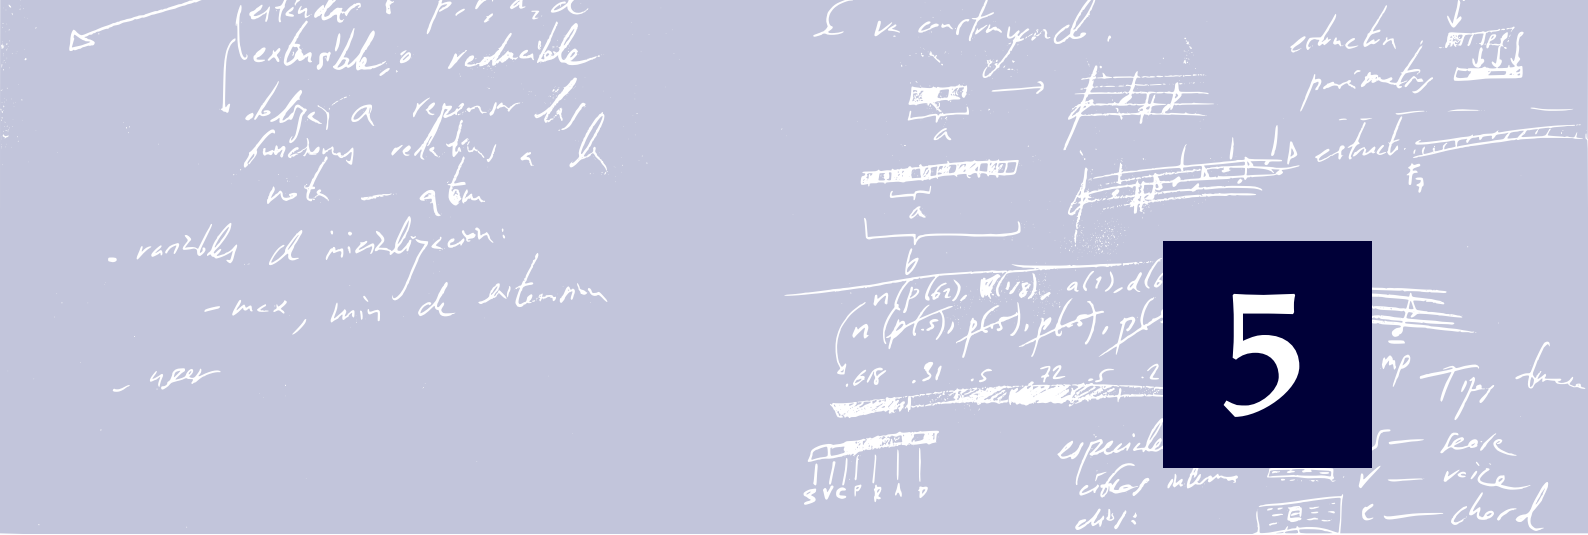 estándar s p, r, a, d
extensible, o reducible
obliga a repensar las
funciones relativas a la
nota — atom
- variables de inicialización:
- max, min de extension
- user
Se va construyendo.
a
a
b
n(p(62), (1/8), a(1), d(6
n(p(.5), p(.5), p(.5), p(
.618 .31 .5 .72 .5 .2
S V C P R A D
estructura
parámetros
estruct.
F7
5
mp
Tipos
especiales
S — score
V — voice
c — chord